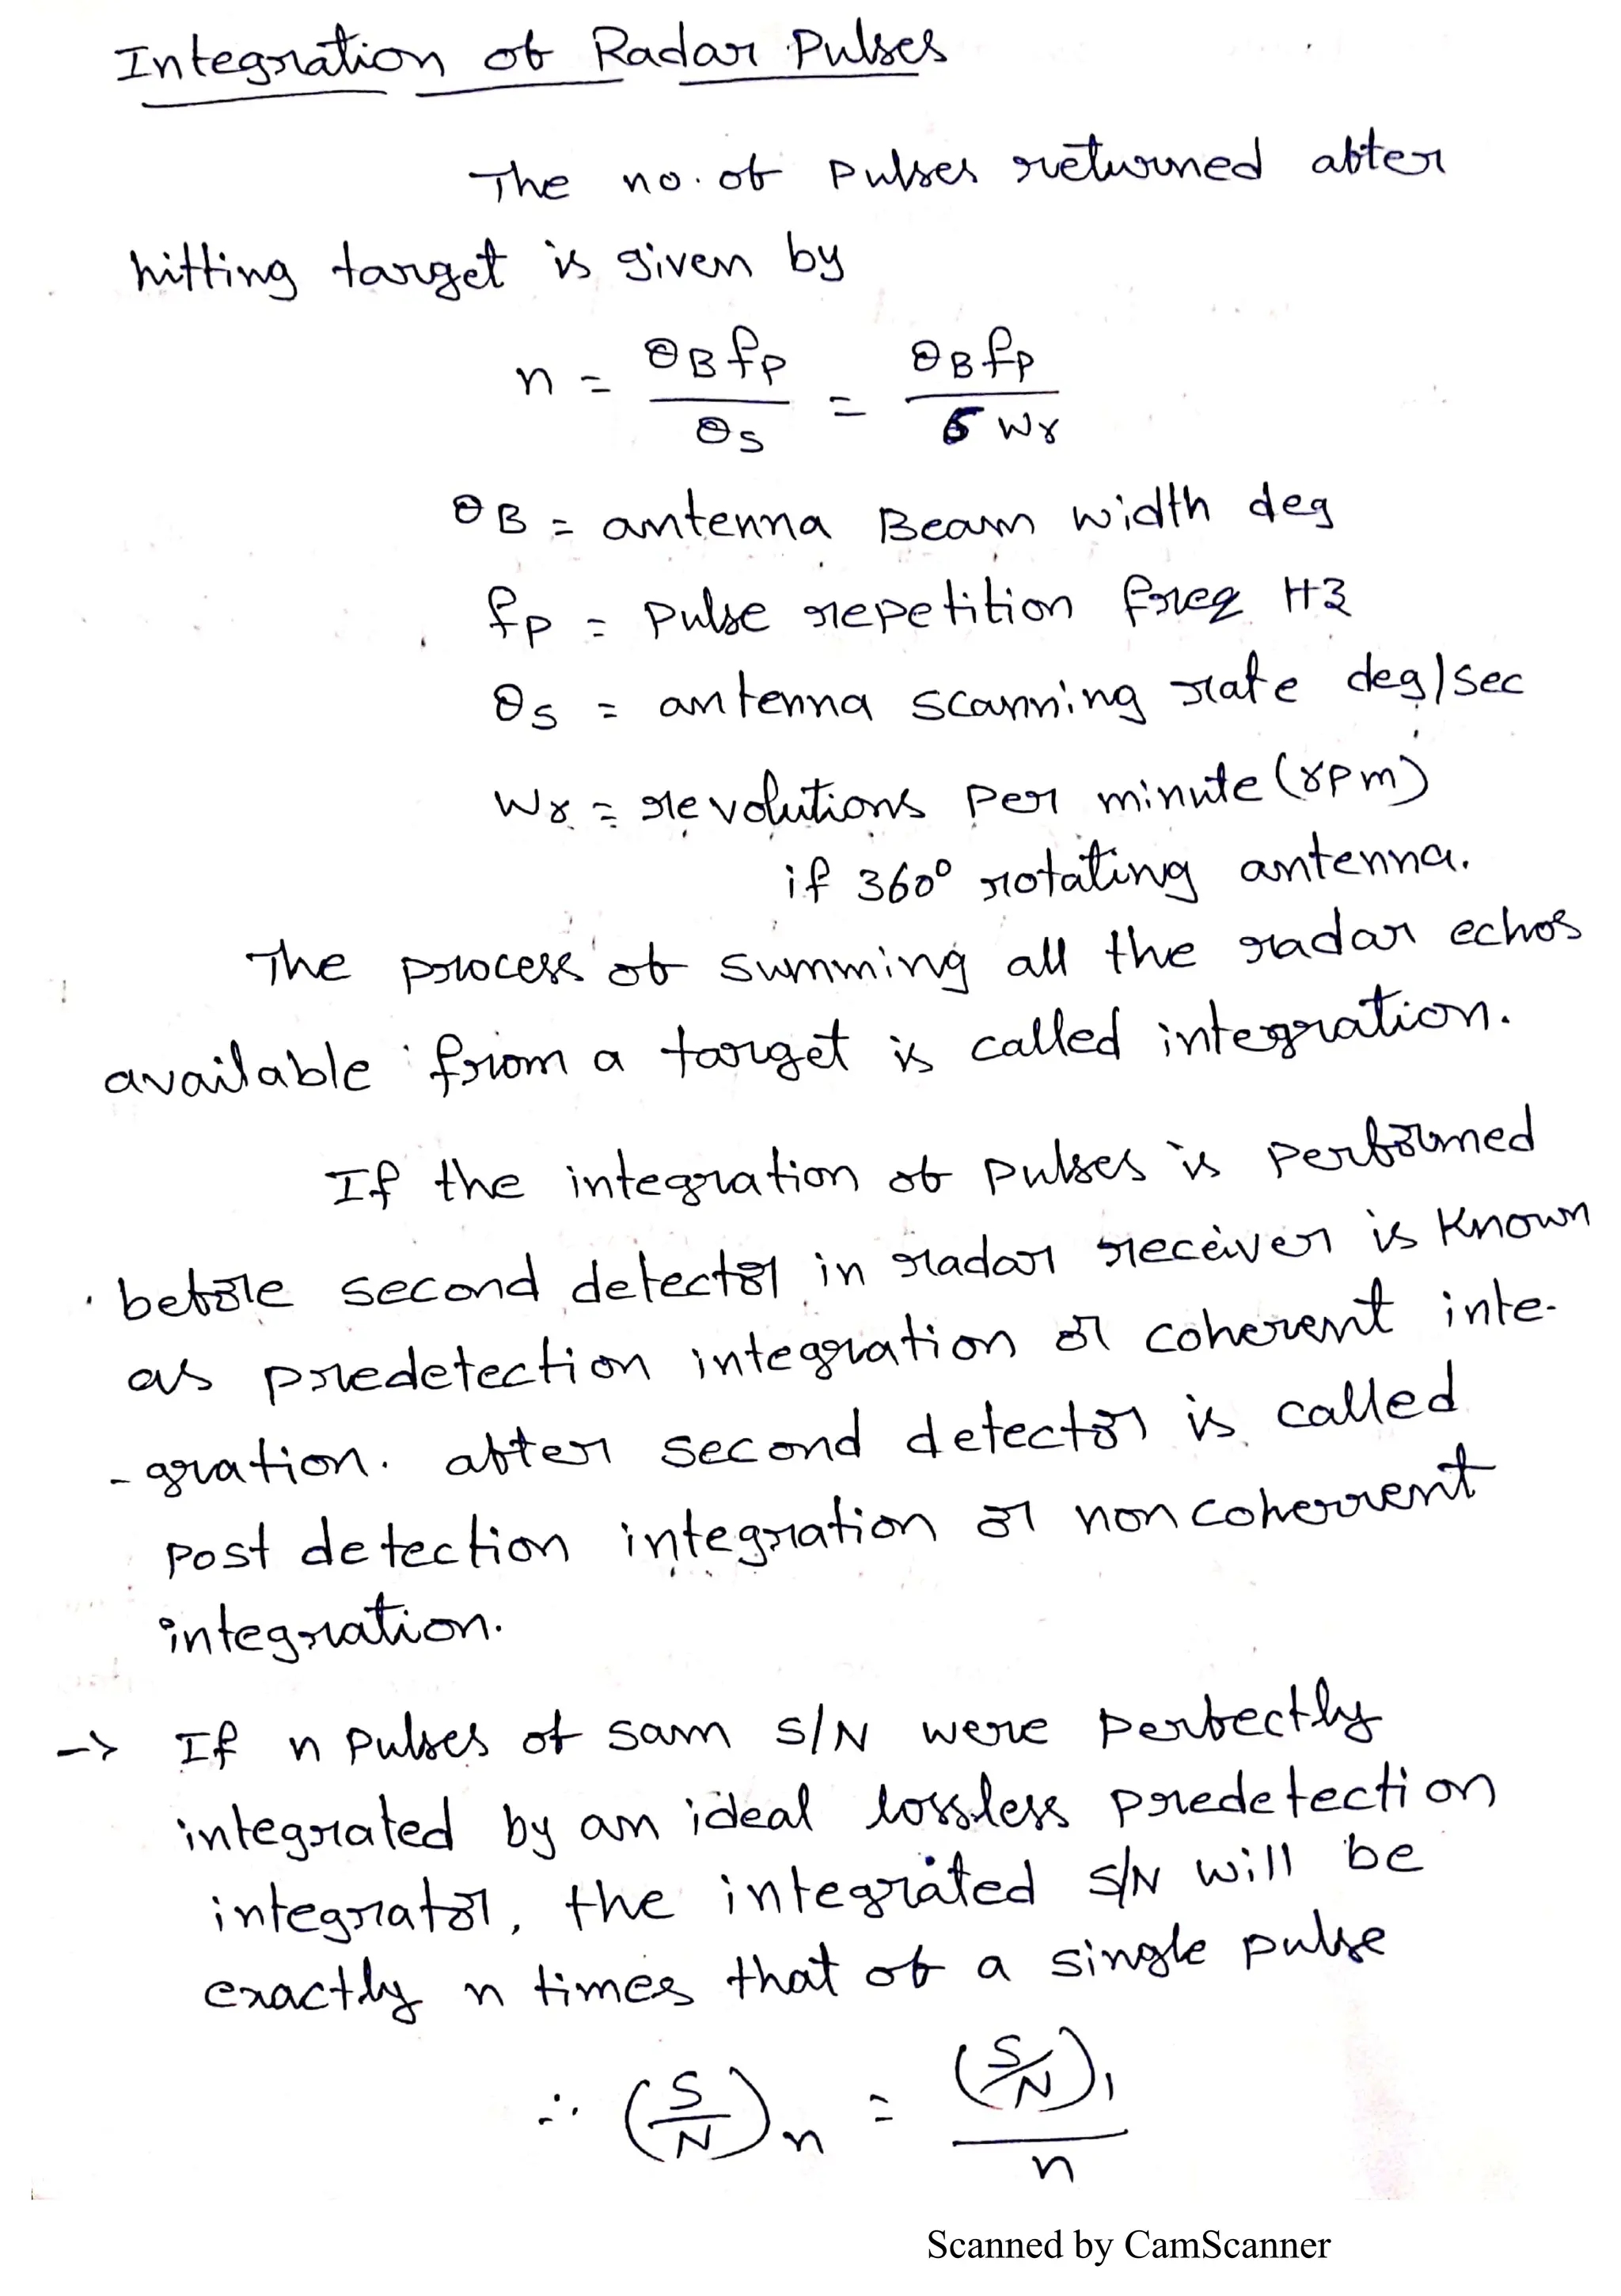 Integration of Radar Pulses
The no. of pulses returned after
hitting target is given by
n = θB fp / θs = θB fp / 6 wr
θB = antenna Beam width deg
fp = pulse repetition freq Hz
θs = antenna scanning rate deg/sec
wr = revolutions per minute (rpm)
if 360° rotating antenna.
The process of summing all the radar echos
available from a target is called integration.
If the integration of pulses is performed
before second detector in radar receiver is known
as predetection integration or coherent inte-
-gration. after second detector is called
post detection integration or noncoherrent
integration.
-> If n pulses of sam S/N were perfectly
integrated by an ideal lossless predetection
integrator, the integrated S/N will be
exactly n times that of a single pulse
∴ (S/N)n = (S/N)1 / n
Scanned by CamScanner